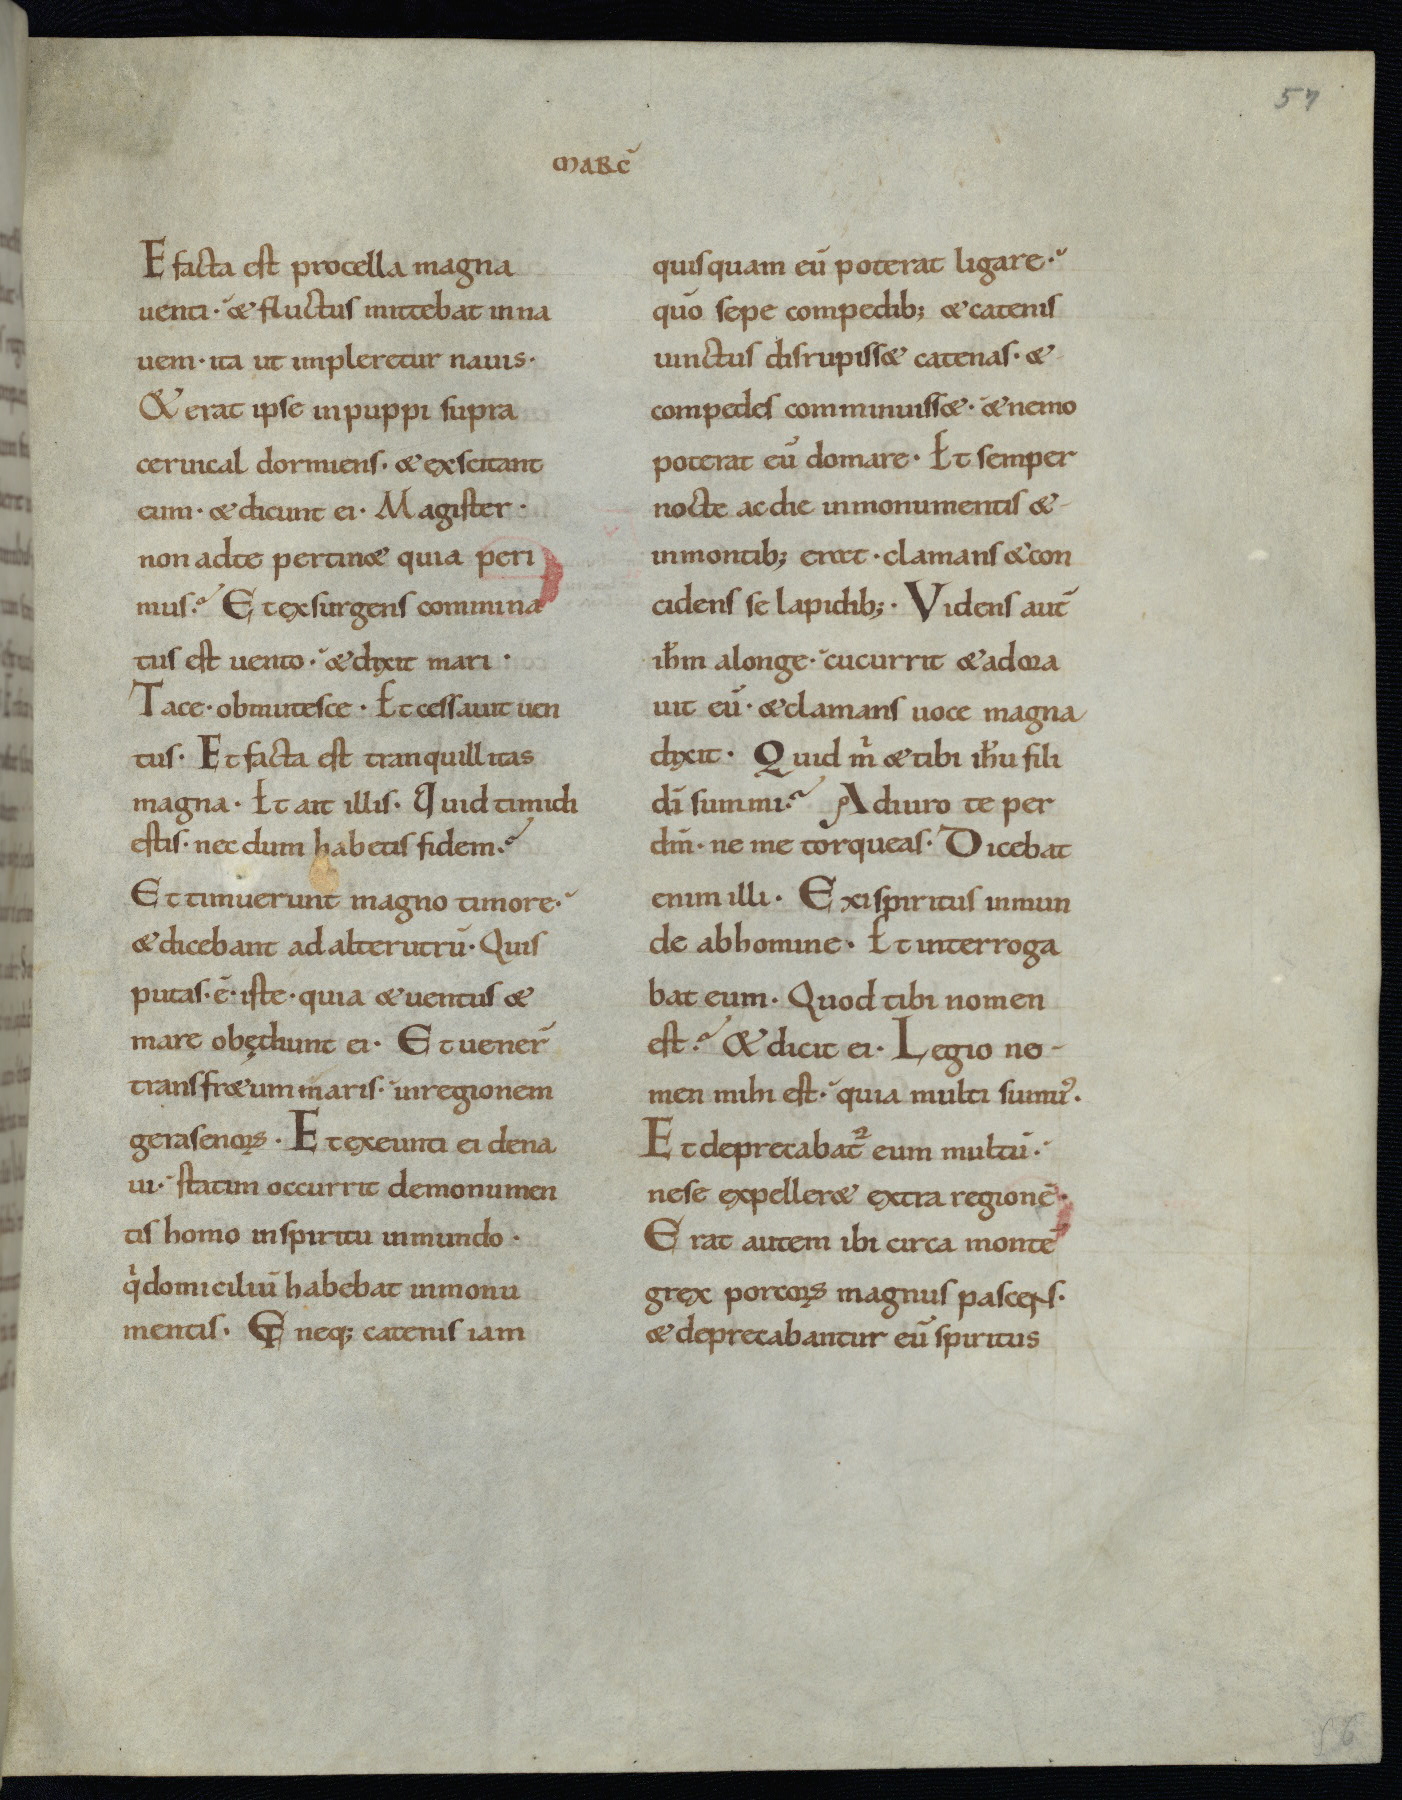 57
MARC̄
E facta est procella magna
uenti· & fluctus mittebat inna
uem· ita ut impleretur nauis·
& erat ipse inpuppi supra
ceruical dormiens· & exscitant
eum· & dicunt ei· Magister·
non adte pertin& quia peri
mus? Et exsurgens commina
tus est uento· & dixit mari·
Tace· obmutesce· Et cessauit uen
tus· Et facta est tranquillitas
magna· Et ait illis· Quid timidi
estis· nec dum habetis fidem?
Et timuerunt magno timore·
& dicebant ad alterutrū· Quis
putas· ē· iste· quia & uentus &
mare obędiunt ei· Et uener̄
trans fr&um maris· inregionem
gerasenoꝝ· Et exeunti ei dena
ui· statim occurrit demonumen
tis homo inspiritu inmundo·
q̇ domiciliū habebat inmonu
mentis· Et neq; catenis iam
quisquam eū poterat ligare·
quō sepe compedib; & catenis
uinctus disrupiss& catenas· &
compedes comminuiss&· & nemo
poterat eū domare· Et semper
nocte ac die inmonumentis &
inmontib; erat· clamans & con
cidens se lapidib;· Videns aut̄
ih̄m alonge· cucurrit & adora
uit eū· & clamans uoce magna
dixit· Quid m̉ & tibi ih̄u fili
dī summi? Adiuro te per
dm̄· ne me torqueas· Dicebat
enim illi· Exi spiritus inmun
de abhomine· Et interroga
bat eum· Quod tibi nomen
est? & dicit ei· Legio no-
men mihi est· quia multi sumꝰ·
Et deprecabat̃ eum multū·
nese expeller& extra regionē·
Erat autem ibi circa montē
grex porcoꝝ magnus pascens·
& deprecabantur eū spiritus
56